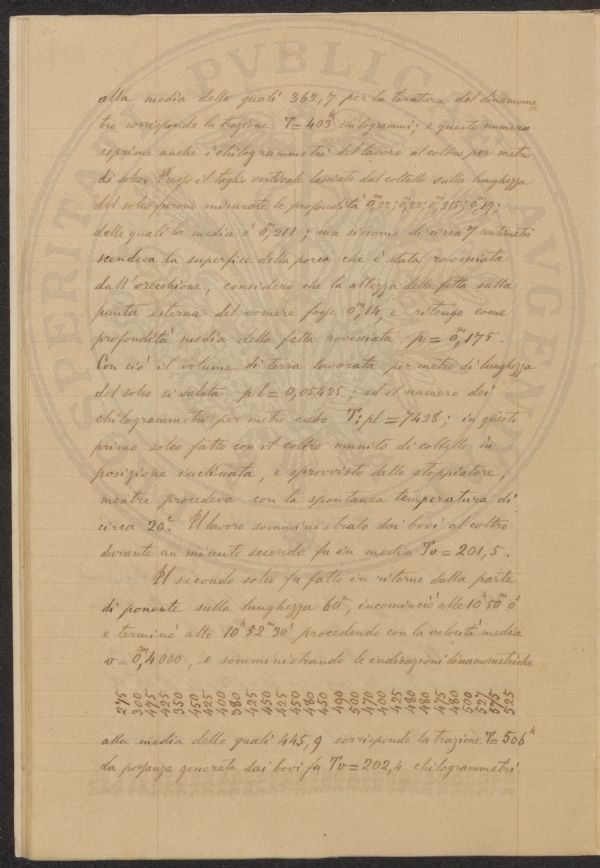 alla media delle quali 362,7 per la taratura del dinamome=
tro corrisponde la trazione T = 403k chilogrammi; e questo numero
esprime anche i chilogrammetri del lavoro al coltro per metro
di solco. Presso il taglio verticale lasciato dal coltello sulla lunghezza
del solco furono misurate le profondità 0m,22; 0m,22; 0m,215; 0m,19;
delle quali la media è 0m,211; ma siccome di circa 7 centimetri
scendeva la superfice della porca che è stata rovesciata
dall'orecchione, considero che la altezza della fetta sulla
punta esterna del vomere fosse 0m,14, e ritengo come
profondità media della fetta rovesciata p = 0m,175.
Con ciò il volume di terra lavorata per metro di lunghezza
del solco si valuta pl = 0,05425; ed il numero dei
chilogrammetri per metro cubo T:pl = 7428; in questo
primo solco fatto con il coltro munito di coltello in
posizione inclinata, e sprovvisto dello stoppiatore,
mentre procedeva con la spontanea temperatura di
circa 20°. Il lavoro somministrato dai bovi al coltro
durante un minuto secondo fu in media Tv = 201,5.
Il secondo solco fu fatto in ritorno dalla parte
di ponente sulla lunghezza 60m, incominciò alle 10h 50m 0s
e terminò alle 10h 52m 30s procedendo con la velocità media
v = 0m,4000, e somministrando le indicazioni dinamometriche
275 300 475 425 350 450 425 400 380 425 450 425 450 480 450 490 500 470 400 425 480 480 475 480 500 527 575 525
alla media delle quali 445,9 corrisponde la trazione T = 506k
La possanza generata dai bovi fu Tv = 202,4 chilogrammetri.
PVBLICAE